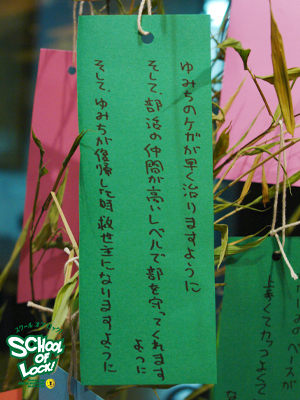 ゆみちのケガが早く治りますように
そして、部活の仲間が高いレベルで部を守ってくれます
ように
そして、ゆみちが復帰した時救世主になりますように
のベースが
上手くなっ
SCHOOL
OF
LOCK!